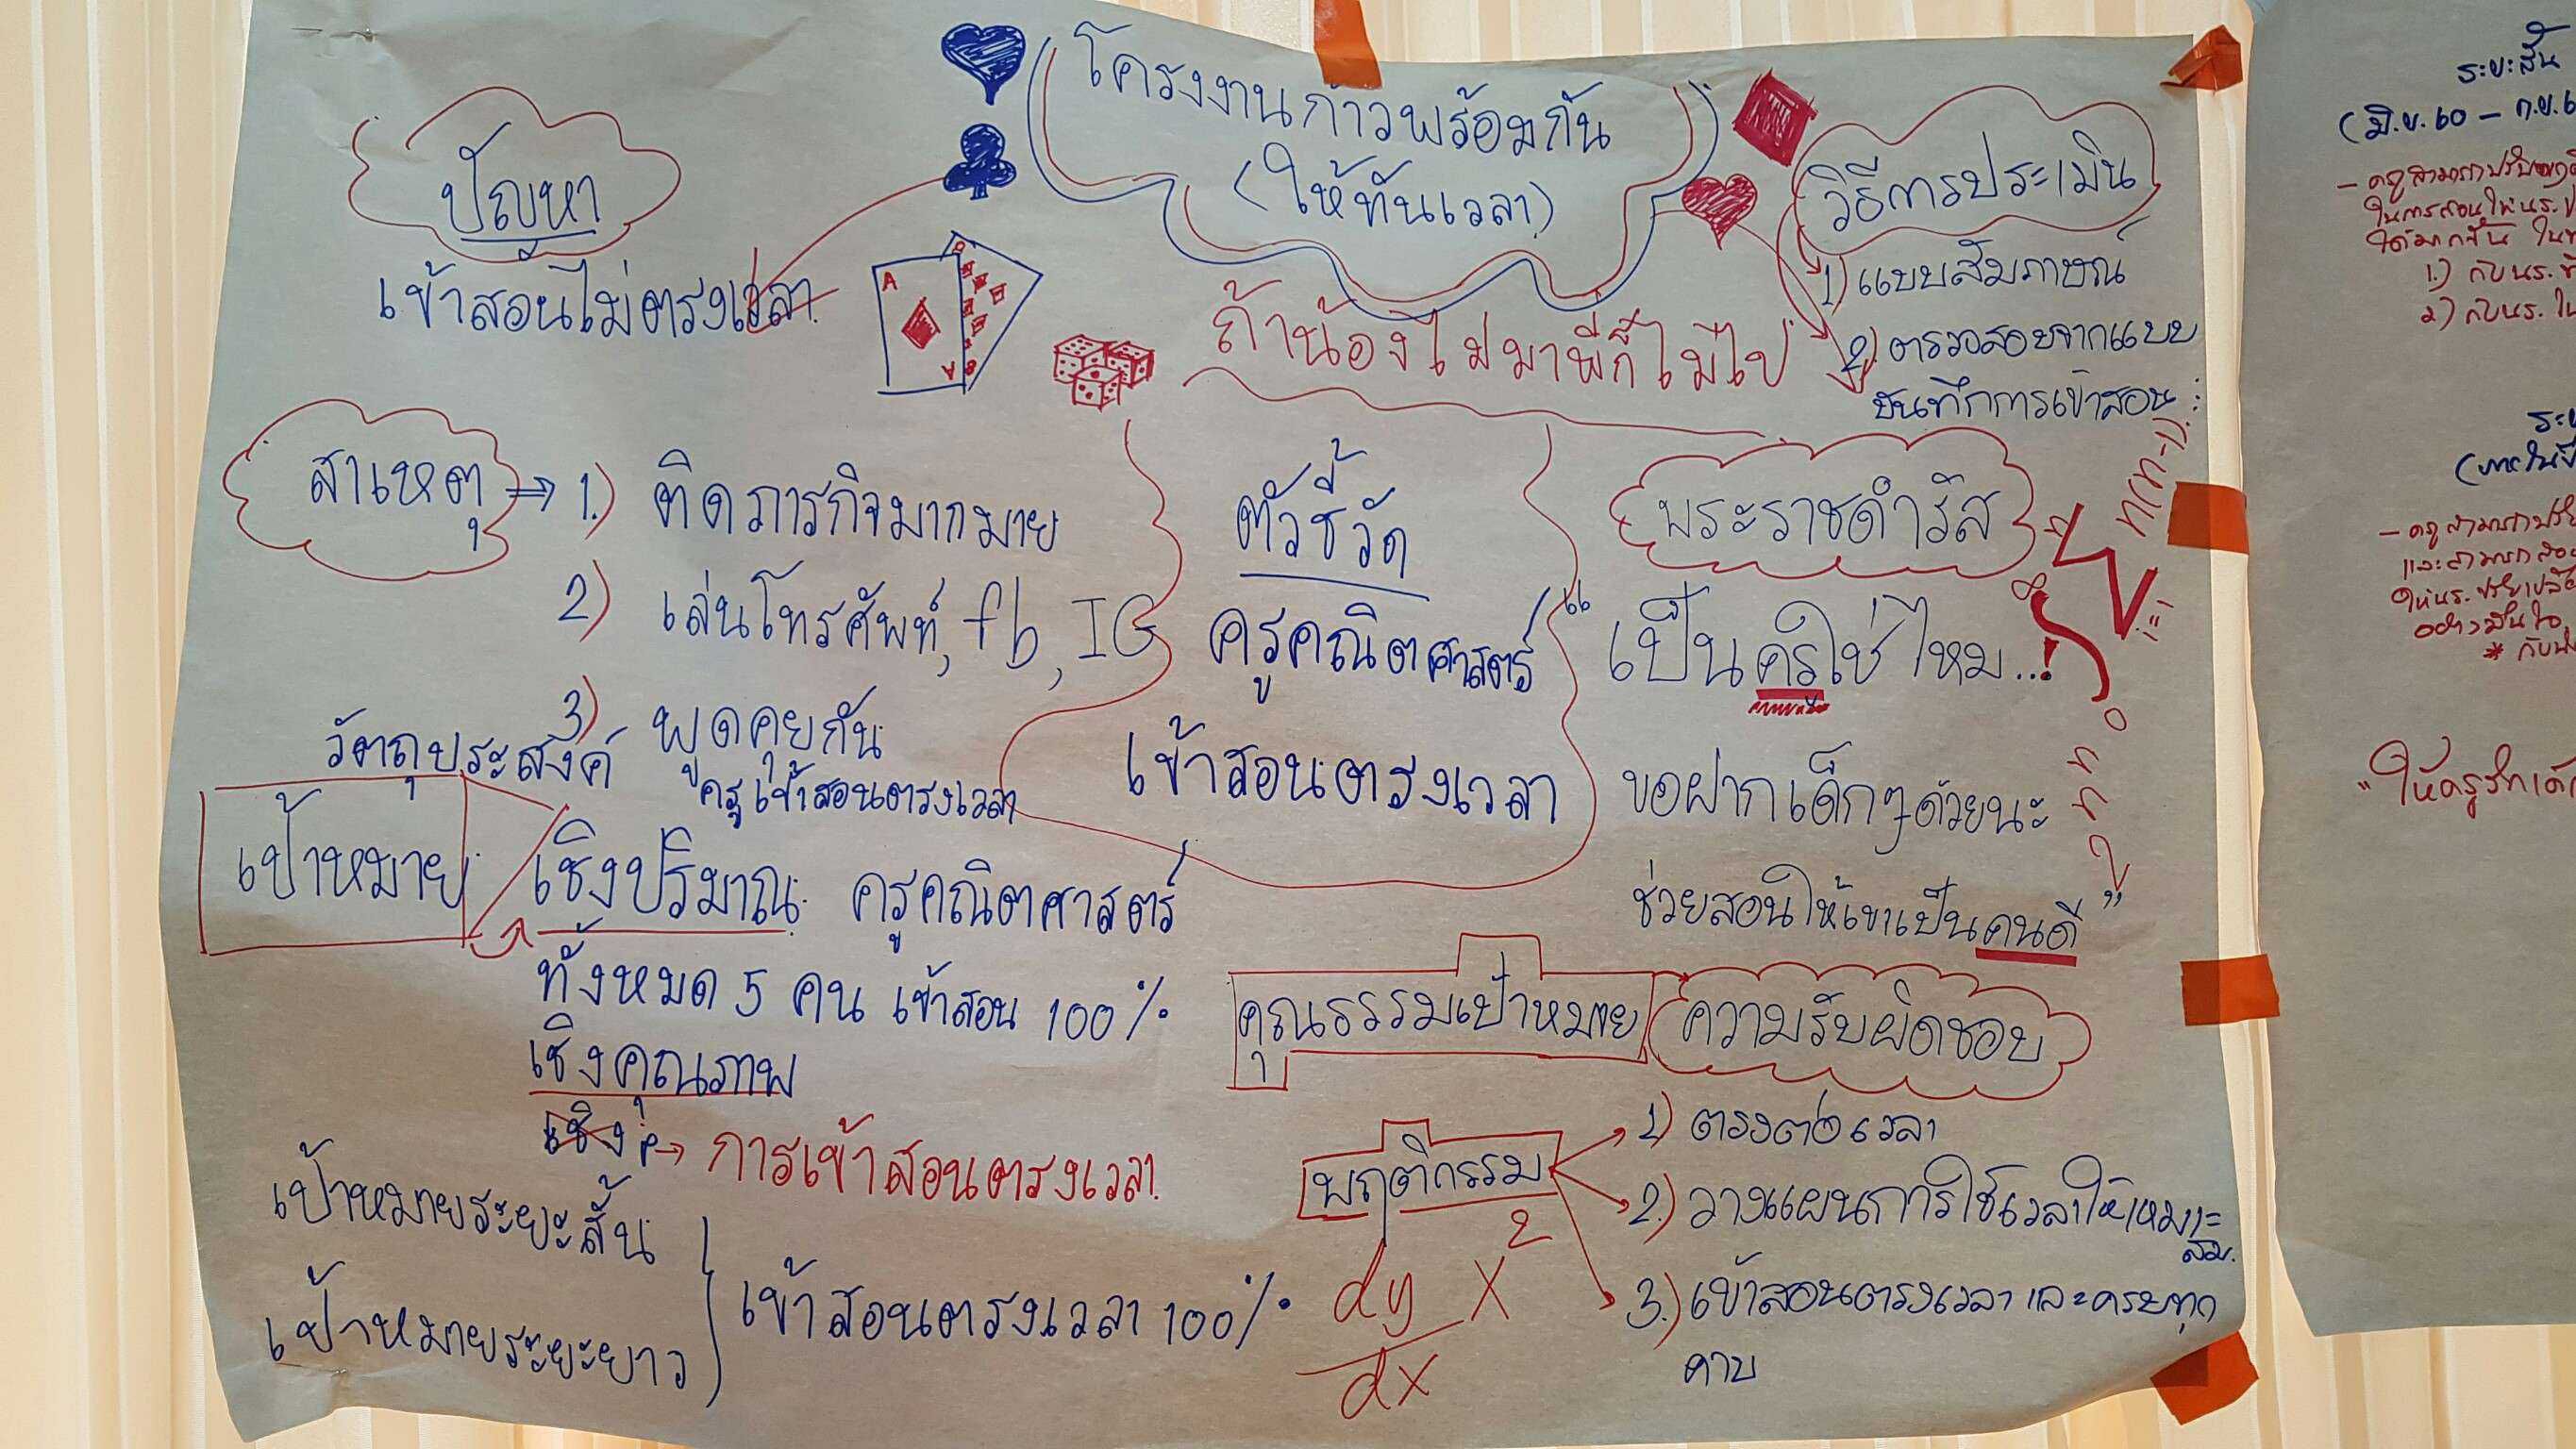 โครงงานก้าวพร้อมกัน
(ให้ทันเวลา)
ถ้าน้องไม่มาพี่ก็ไม่ไป
ปัญหา
เข้าสอนไม่ตรงเวลา
A
A
สาเหตุ
1.) ติดภารกิจมากมาย
2) เล่นโทรศัพท์, fb, IG
3) พูดคุยกัน
วัตถุประสงค์
ครูเข้าสอนตรงเวลา
เป้าหมาย
เชิงปริมาณ: ครูคณิตศาสตร์
ทั้งหมด 5 คน เข้าสอน 100%
เชิงคุณภาพ
เชิง
การเข้าสอนตรงเวลา.
เป้าหมายระยะสั้น
เป้าหมายระยะยาว
เข้าสอนตรงเวลา 100%
ตัวชี้วัด
ครูคณิตศาสตร์
เข้าสอนตรงเวลา
วิธีการประเมิน
1) แบบสัมภาษณ์
2) ตรวจสอบจากแบบ
บันทึกการเข้าสอน
พระราชดำรัส
"เป็นครูใช่ไหม...
ขอฝากเด็กๆด้วยนะ
ช่วยสอนให้เขาเป็นคนดี"
n(n-1)
i=1
คุณธรรมเป้าหมาย
ความรับผิดชอบ
พฤติกรรม
1) ตรงต่อเวลา
2.) วางแผนการใช้เวลาให้เหมาะ
สม.
3.) เข้าสอนตรงเวลา และครบทุก
คาบ
dy x²
dx
ระยะสั้น
(มิ.ย. 60 –
1.) กับนร.
2) กับนร. ใน